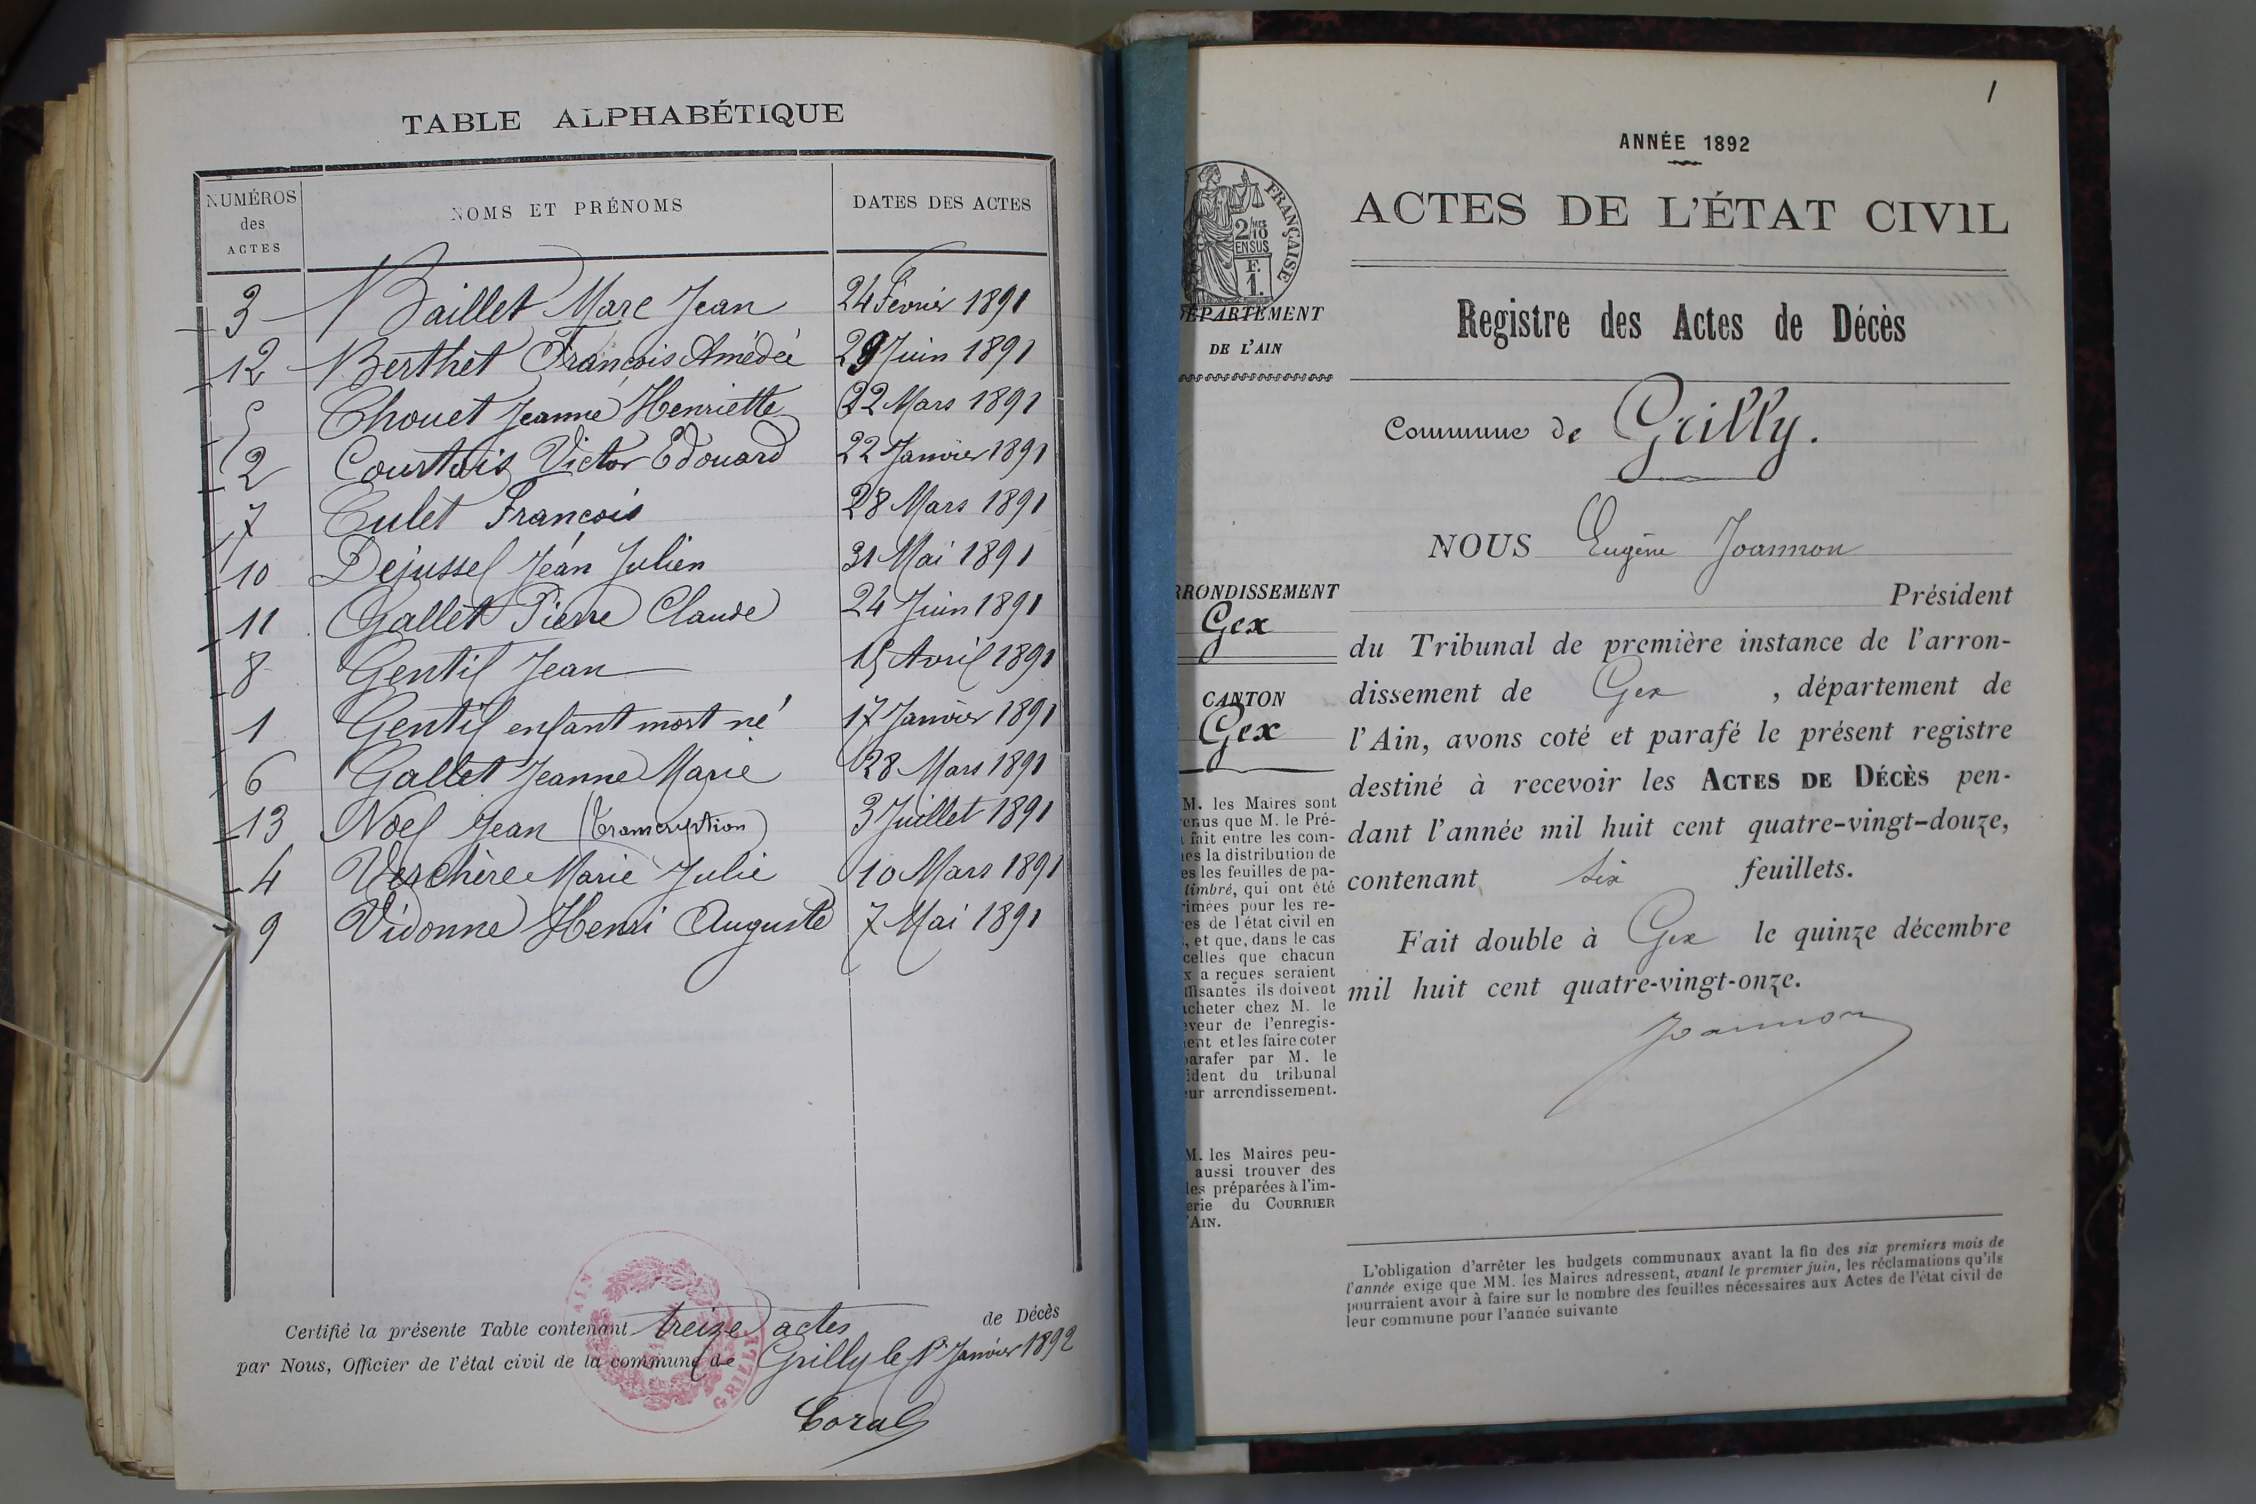 TABLE ALPHABÉTIQUE
NUMÉROS des ACTES NOMS ET PRÉNOMS DATES DES ACTES
3 Baillet Marc Jean 24 Février 1891
12 Berthet François Amédée 29 Juin 1891
5 Chouet Jeanne Henriette 22 Mars 1891
2 Courtois Victor Edouard 22 Janvier 1891
7 Culet François 28 Mars 1891
10 Dejussel Jean Julien 31 Mai 1891
11 Gallet Pierre Claude 24 Juin 1891
8 Gentil Jean 15 Avril 1891
1 Gentil enfant mort né 17 Janvier 1891
6 Gallet Jeanne Marie 28 Mars 1891
13 Noel Jean (Transcription) 3 Juillet 1891
4 Verchère Marie Julie 10 Mars 1891
9 Vidonne Henri Auguste 7 Mai 1891
Certifié la présente Table contenant treize actes de Décès
par Nous, Officier de l'état civil de la commune de Grilly le 1er Janvier 1892
AIN
GRILLY
1
ANNÉE 1892
ACTES DE L'ÉTAT CIVIL
Registre des Actes de Décès
Commune de Grilly.
NOUS Eugène Joannon
Président
du Tribunal de première instance de l'arron-
dissement de Gex, département de
l'Ain, avons coté et parafé le présent registre
destiné à recevoir les ACTES DE DÉCÈS pen-
dant l'année mil huit cent quatre-vingt-douze,
contenant six feuillets.
Fait double à Gex le quinze décembre
mil huit cent quatre-vingt-onze.
Joannon
FRANÇAISE
2/10
EN SUS
F.
1.
DÉPARTEMENT
DE L'AIN
RRONDISSEMENT
Gex
CANTON
Gex
M. les Maires sont
enus que M. le Pré-
fait entre les com-
es la distribution de
es les feuilles de pa-
timbré, qui ont été
rimées pour les re-
es de l'état civil en
, et que, dans le cas
celles que chacun
x a reçues seraient
ffisantes ils doivent
acheter chez M. le
eveur de l'enregis-
ent et les faire coter
parafer par M. le
ident du tribunal
ur arrondissement.
M. les Maires peu-
aussi trouver des
les préparées à l'im-
erie du COURRIER
'AIN.
L'obligation d'arrêter les budgets communaux avant la fin des six premiers mois de
l'année exige que MM. les Maires adressent, avant le premier juin, les réclamations qu'ils
pourraient avoir à faire sur le nombre des feuilles nécessaires aux Actes de l'état civil de
leur commune pour l'année suivante